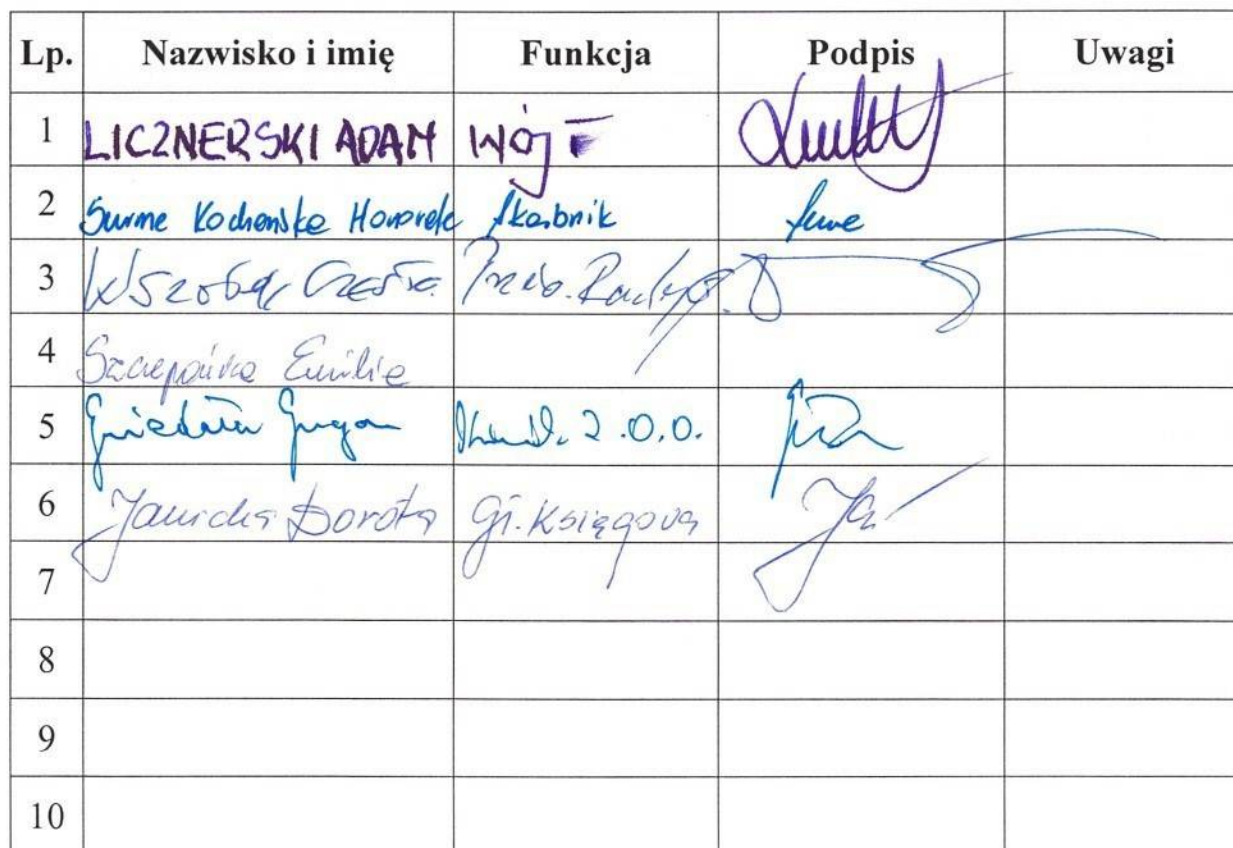 Lp. Nazwisko i imię Funkcja Podpis Uwagi
1 LICZNERSKI ADAM WÓJT
2 Surma Kochańska Honorata Skarbnik
3 Przew. Rady
4 Szczepańska Emilia
5 Z.O.O.
6 Janicka Dorota Gł. Księgowa
7
8
9
10